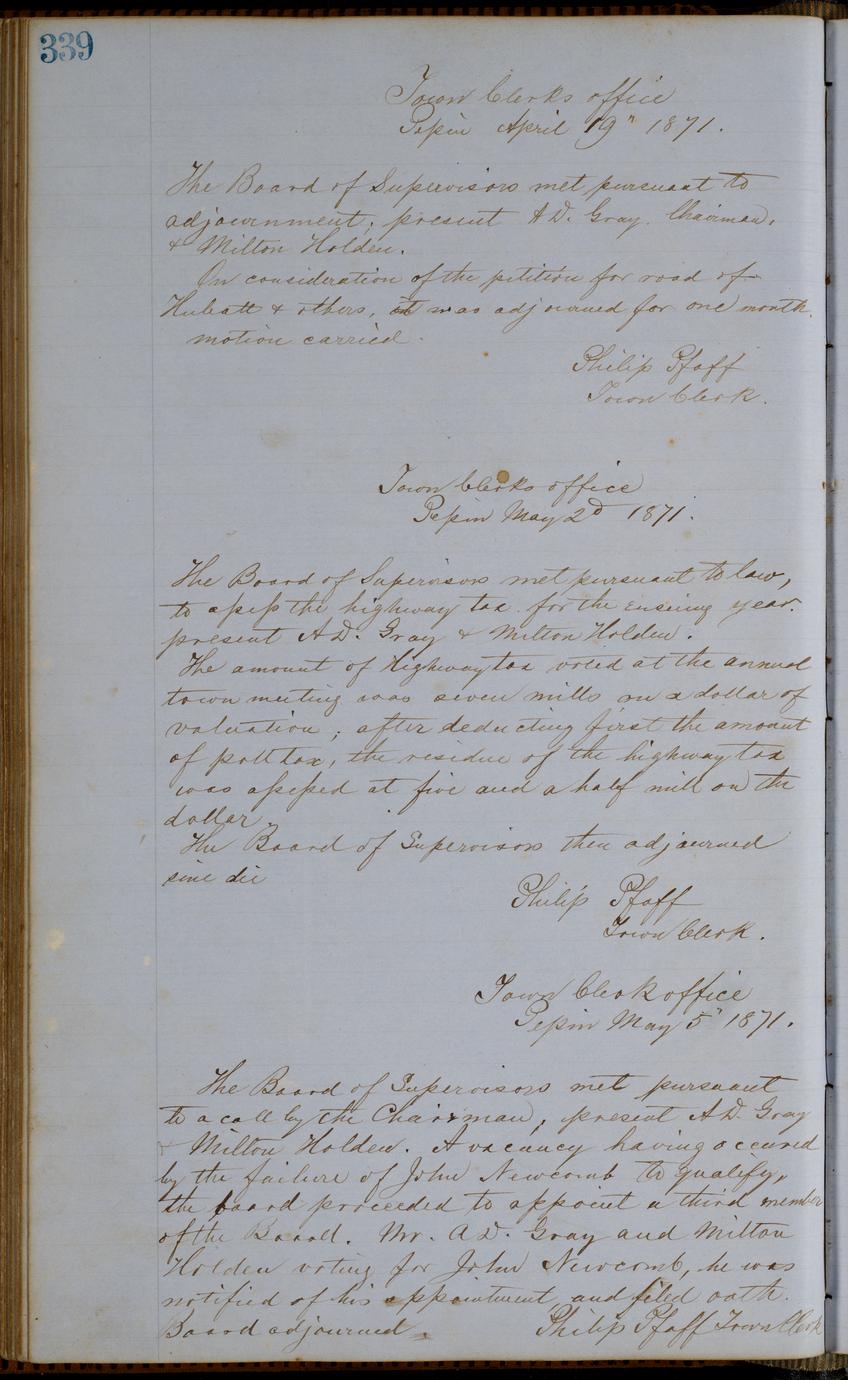 339
Town Clerks office
Pepin April 19" 1871.
The Board of Supervisors met pursuant to
adjournment; present A.D. Gray. Chairman.
& Milton Holden.
On consideration of the petition for road of
& others, it was adjourned for one month.
motion carried.
Philip Pfaff
Town Clerk.
Town Clerks office
Pepin May 2d 1871.
The Board of Supervisors met pursuant to law,
to assess the highway tax for the ensuing year.
present A.D. Gray & Milton Holden.
The amount of Highway tax voted at the annual
town meeting was seven mills on a dollar of
valuation; after deducting first the amount
of poll tax, the residue of the highway tax
was assessed at five and a half mill on the
dollar.
The Board of Supervisors then adjourned
sine die
Philip Pfaff
Town Clerk.
Town Clerk office
Pepin May 5" 1871.
The Board of Supervisors met pursuant
to a call by the Chairman; present A.D. Gray
& Milton Holden. A vacancy having occured
by the failure of John Newcomb to qualify,
the board proceeded to appoint a third member
of the Board. Mr. A.D. Gray and Milton
Holden voting for John Newcomb, he was
notified of his appointment and filed oath.
Board adjourned. Philip Pfaff Town Clerk